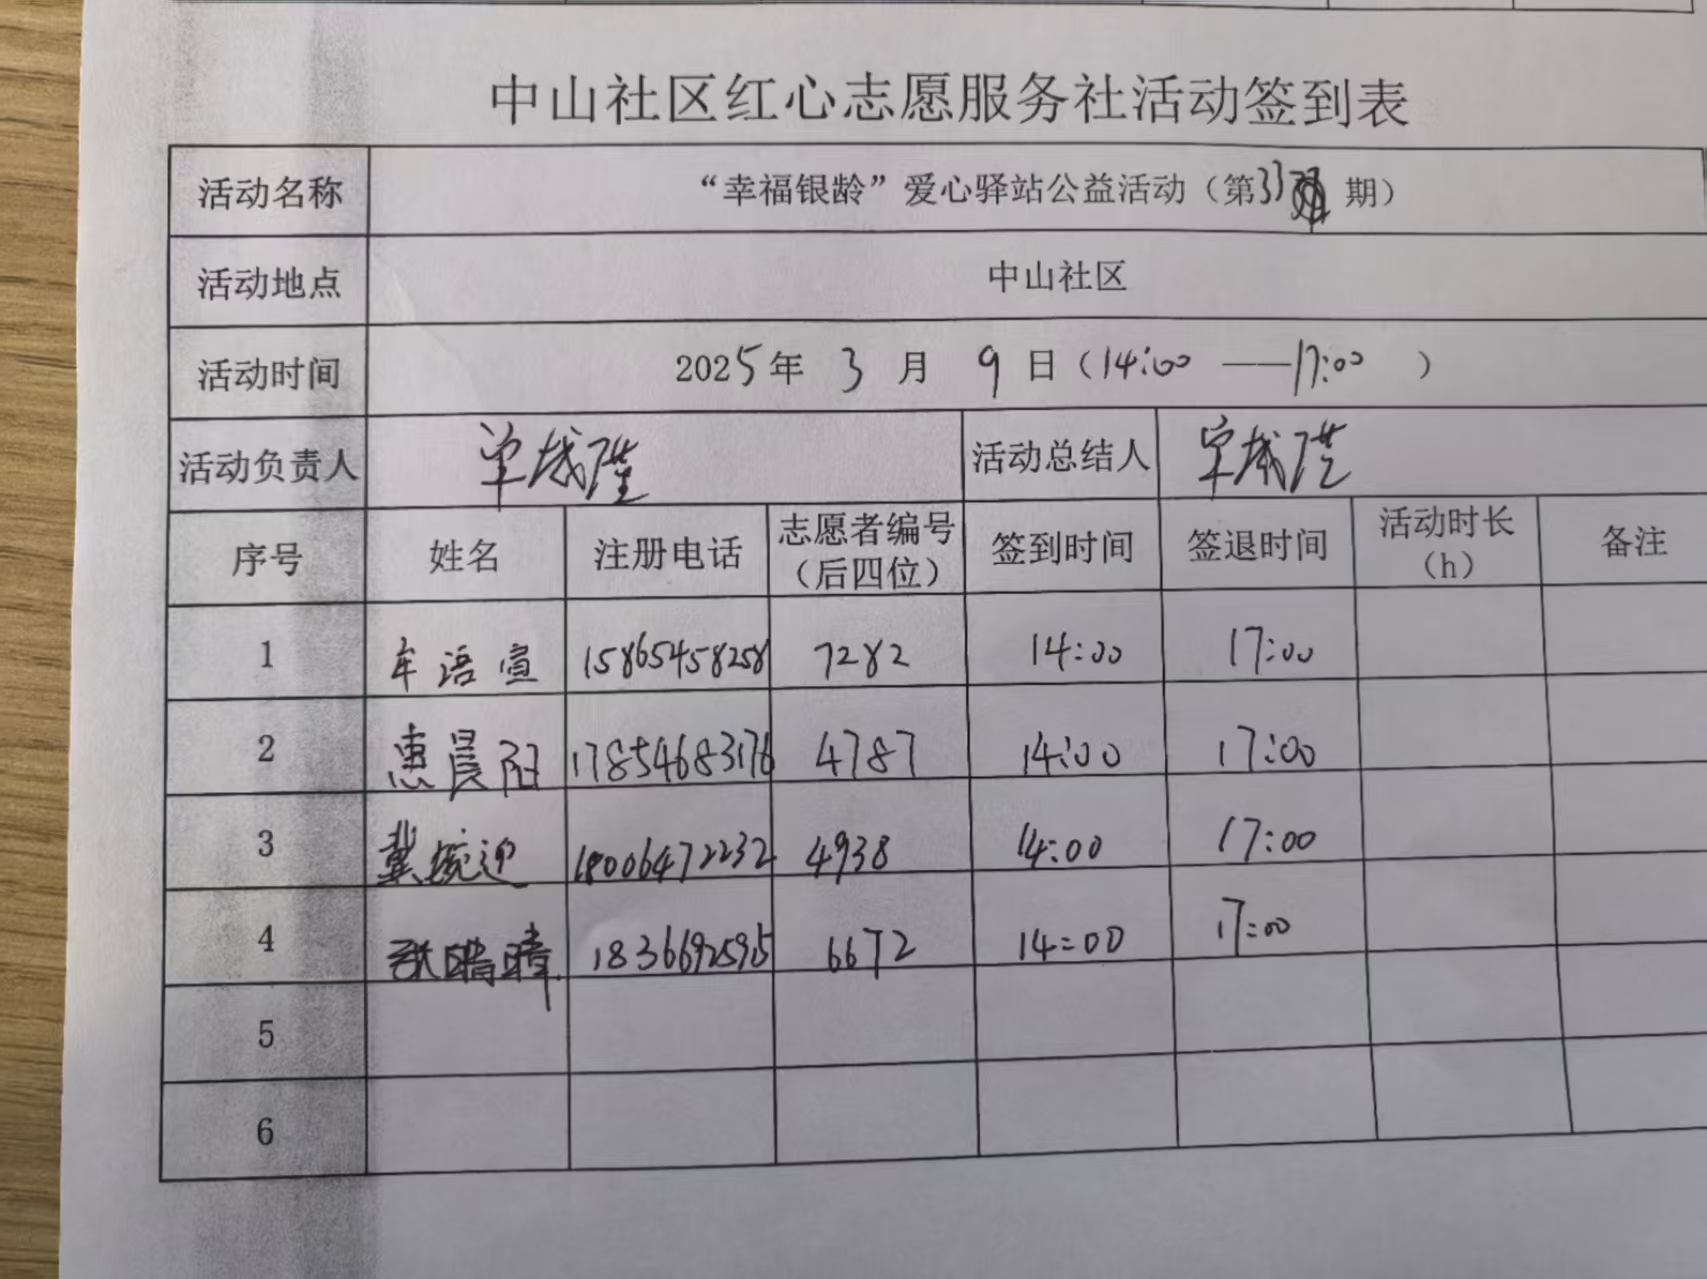 中山社区红心志愿服务社活动签到表
活动名称 “幸福银龄”爱心驿站公益活动（第33期）
活动地点 中山社区
活动时间 2025年 3 月 9 日（14:00 ——17:00 ）
活动负责人 单 活动总结人 单
序号 姓名 注册电话 志愿者编号（后四位） 签到时间 签退时间 活动时长（h） 备注
1 车语宣 15865458258 7282 14:00 17:00
2 惠晨阳 17854683176 4787 14:00 17:00
3 冀婉迎 18006472232 4938 14:00 17:00
4 张晴晴 18366925915 6672 14:00 17:00
5
6